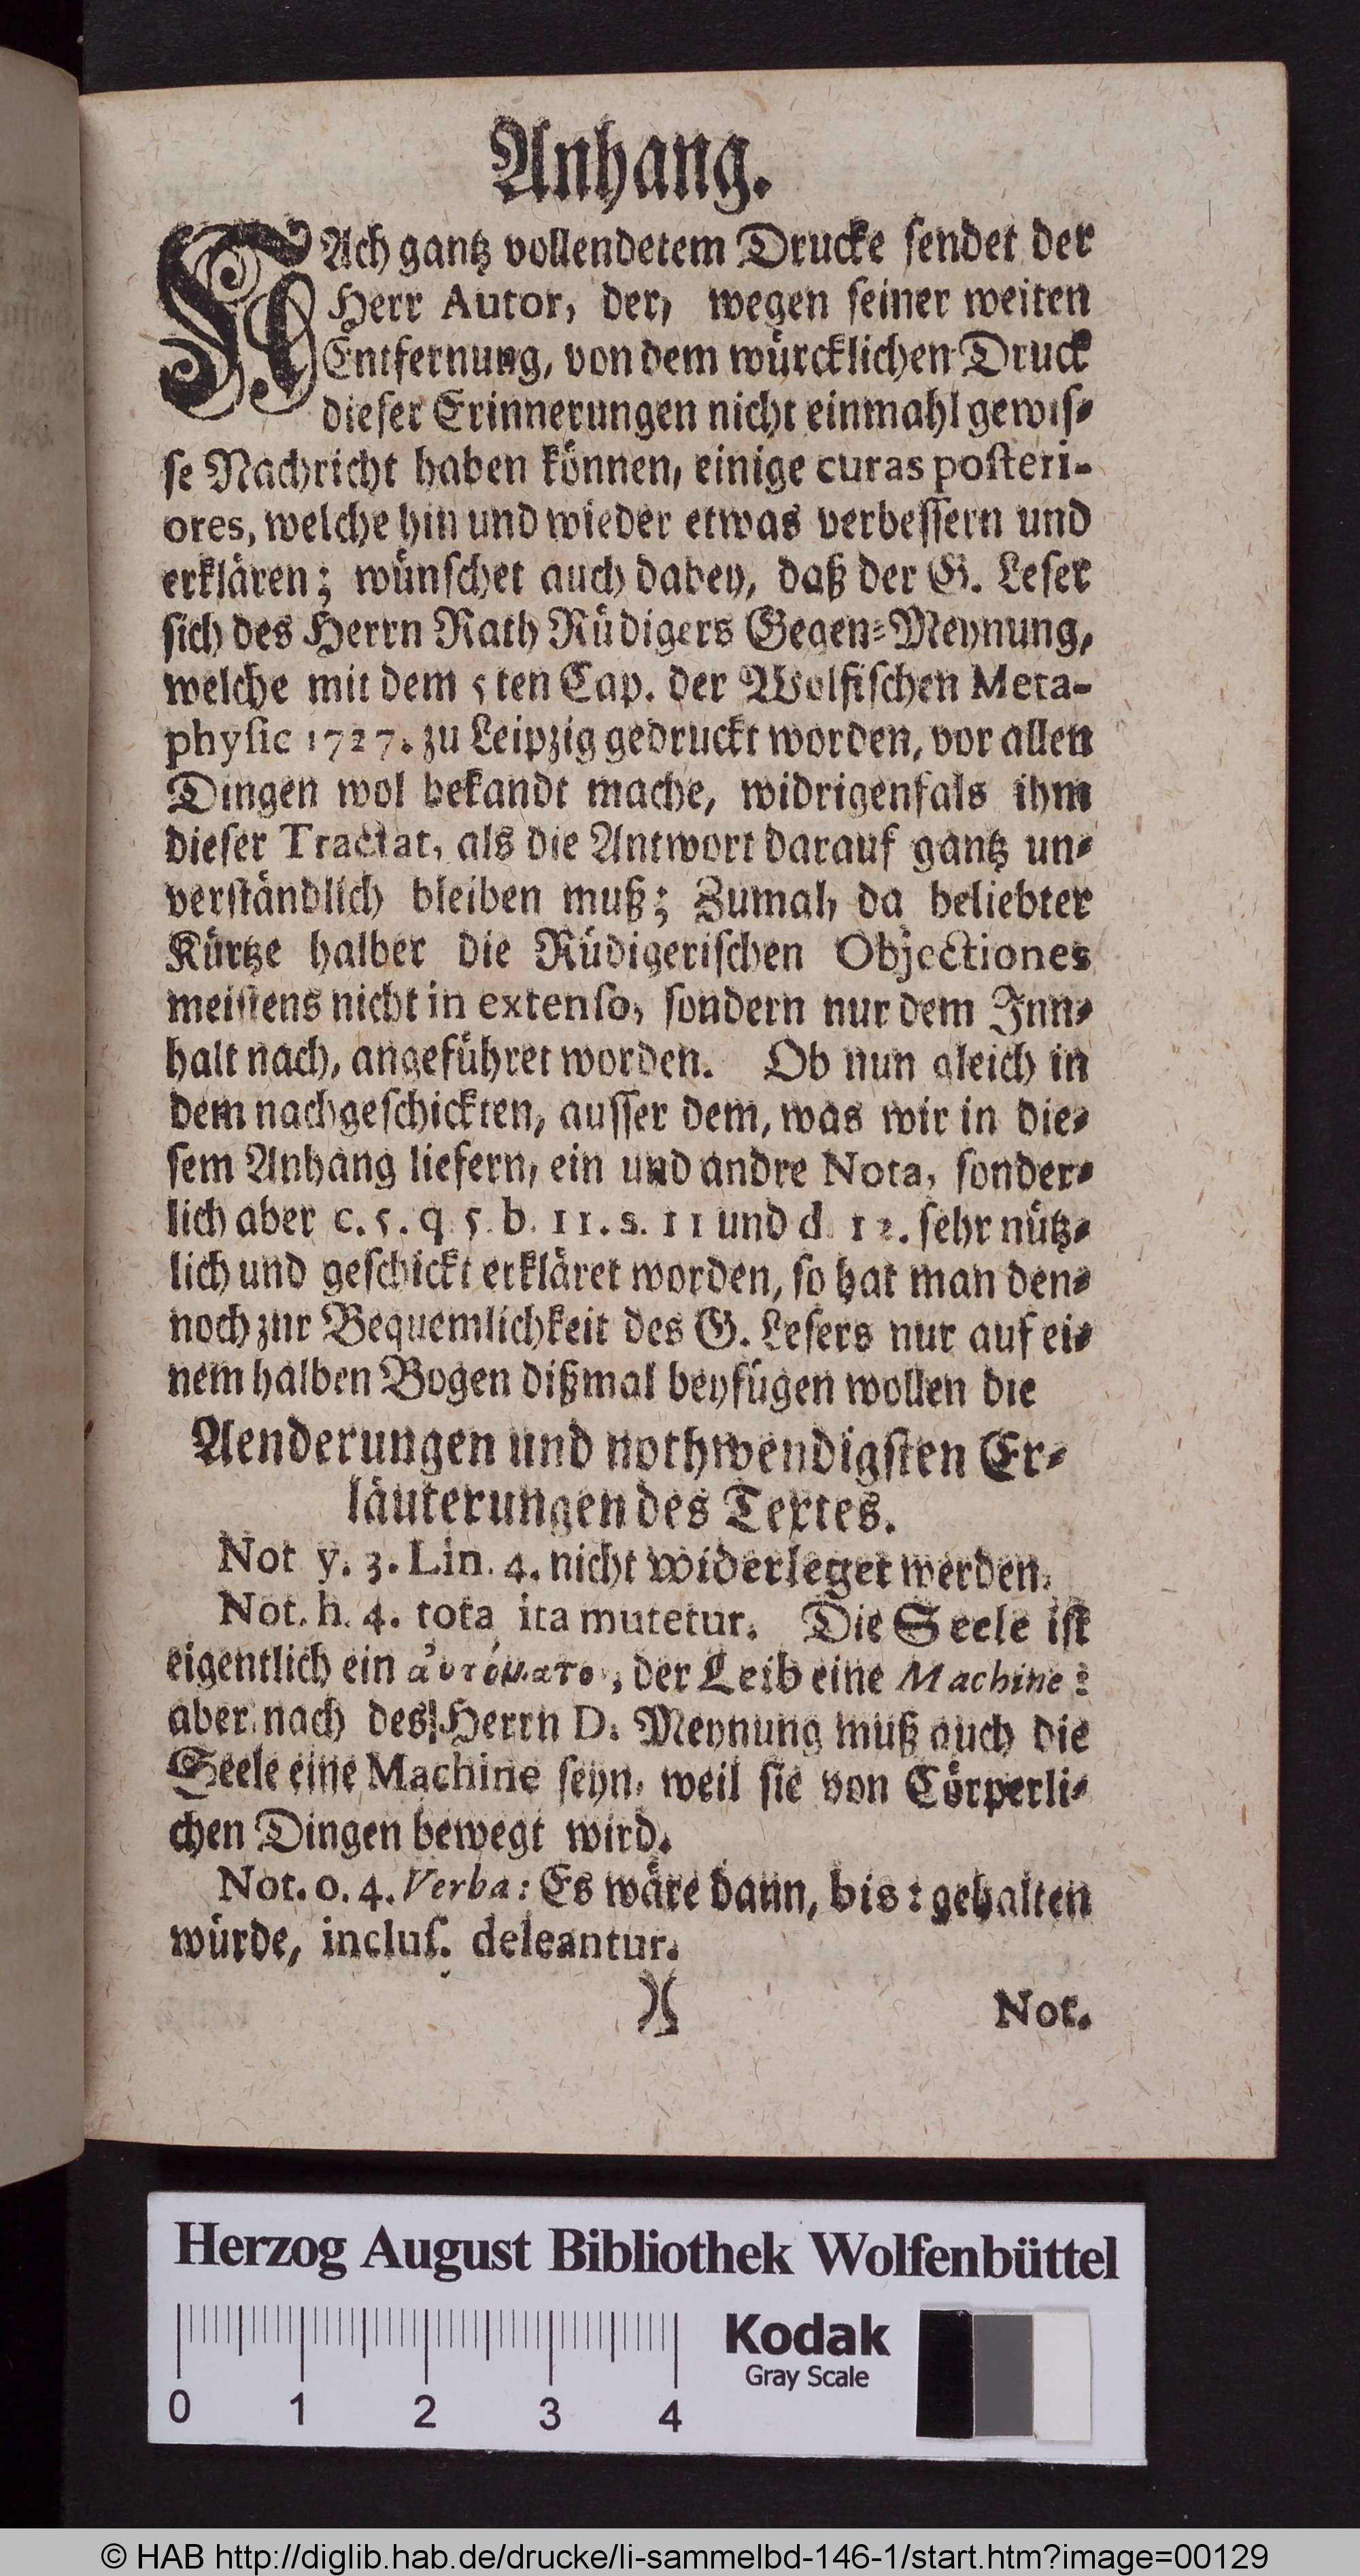 Anhang.
NAch gantz vollendetem Drucke sendet der
Herr Autor, der, wegen seiner weiten
Entfernung, von dem würcklichen Druck
dieser Erinnerungen nicht einmahl gewis-
se Nachricht haben können, einige curas posteri-
ores, welche hin und wieder etwas verbessern und
erklären; wünschet auch dabey, daß der G. Leser
sich des Herrn Rath Rüdigers Gegen-Meynung,
welche mit dem 5ten Cap. der Wolfischen Meta-
physic 1727. zu Leipzig gedruckt worden, vor allen
Dingen wol bekandt mache, widrigenfals ihm
dieser Tractat, als die Antwort darauf gantz un-
verständlich bleiben muß; Zumal, da beliebter
Kürtze halber die Rüdigerischen Objectiones
meistens nicht in extenso, sondern nur dem Inn-
halt nach, angeführet worden. Ob nun gleich in
dem nachgeschickten, ausser dem, was wir in die-
sem Anhang liefern, ein und andre Nota, sonder-
lich aber c. 5. q 5. b. 11. s. 11 und d. 12. sehr nütz-
lich und geschickt erkläret worden, so hat man den-
noch zur Bequemlichkeit des G. Lesers nur auf ei-
nem halben Bogen dißmal beyfügen wollen die
Aenderungen und nothwendigsten Er-
läuterungen des Textes.
Not y. 3. Lin. 4. nicht widerleget werden.
Not. h. 4. tota ita mutetur. Die Seele ist
eigentlich ein ἀυτόματον, der Leib eine Machine:
aber nach des Herrn D. Meynung muß auch die
Seele eine Machine seyn, weil sie von Cörperli-
chen Dingen bewegt wird.
Not. o. 4. Verba: Es wäre dann, bis: gehalten
würde, inclus. deleantur.
)(
Not.
Herzog August Bibliothek Wolfenbüttel
Kodak
Gray Scale
0 1 2 3 4
© HAB http://diglib.hab.de/drucke/li-sammelbd-146-1/start.htm?image=00129